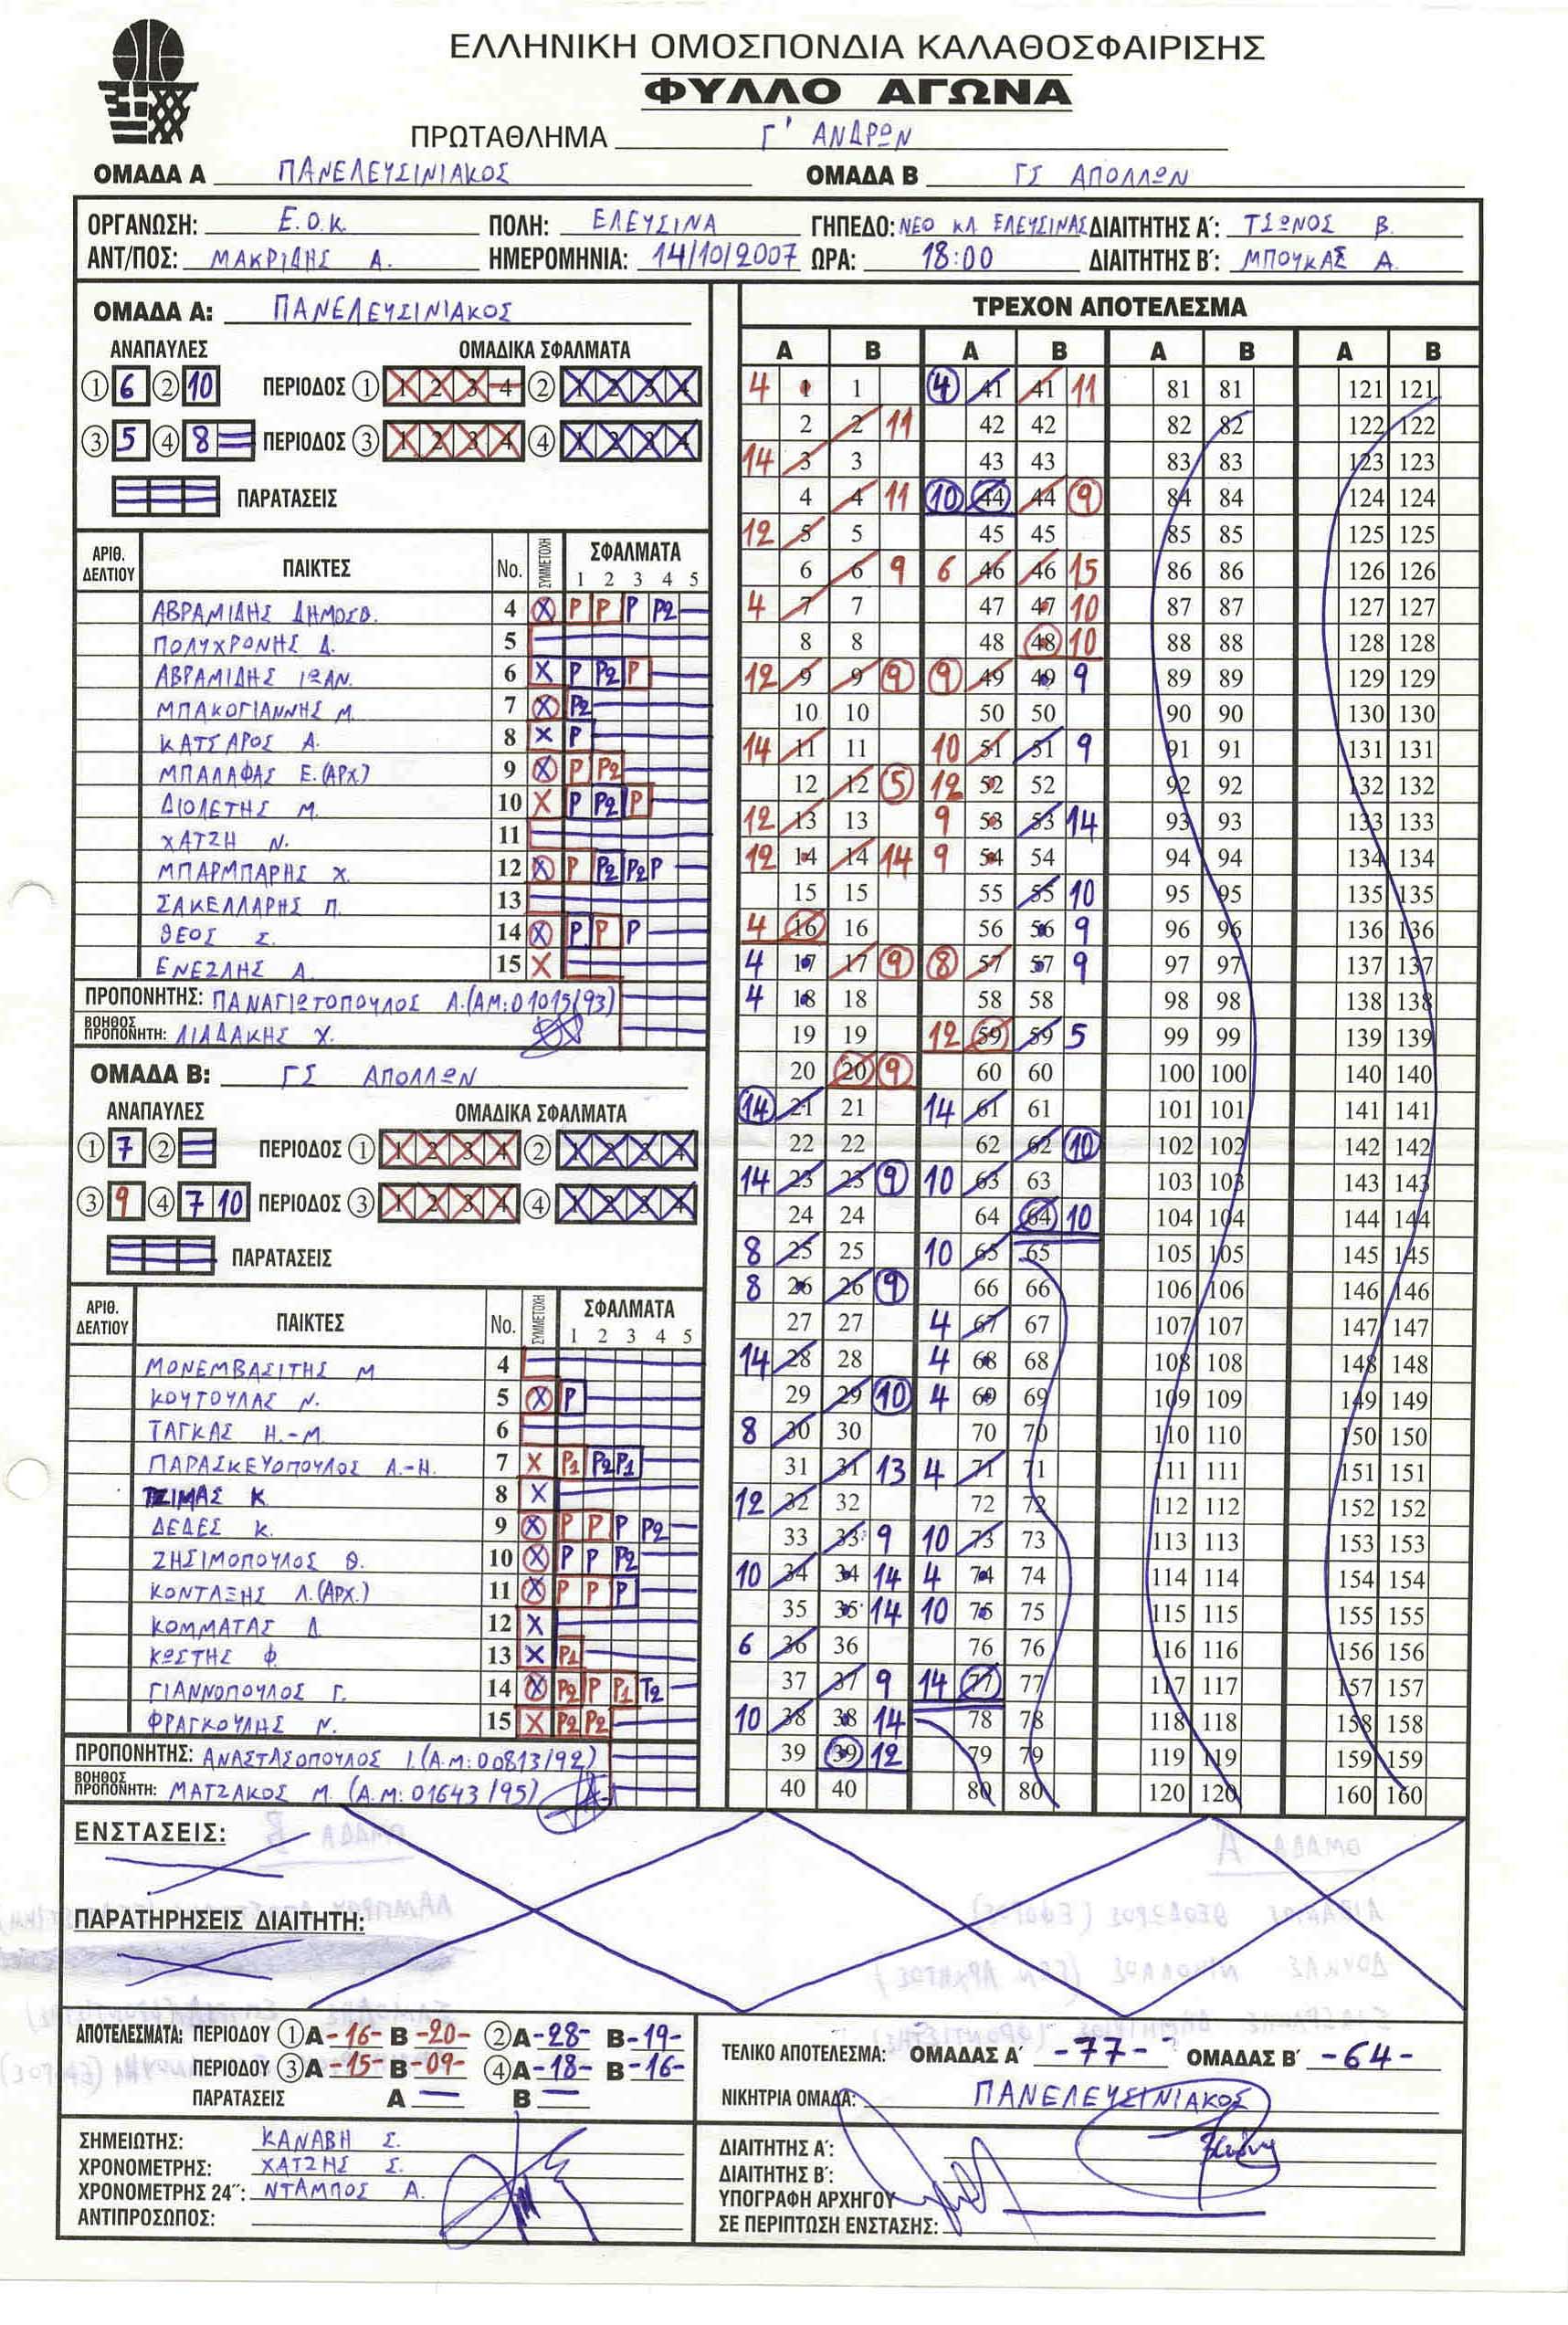 ΕΛΛΗΝΙΚΗ ΟΜΟΣΠΟΝΔΙΑ ΚΑΛΑΘΟΣΦΑΙΡΙΣΗΣ
ΦΥΛΛΟ ΑΓΩΝΑ
ΠΡΩΤΑΘΛΗΜΑ Γ' ΑΝΔΡΩΝ
ΟΜΑΔΑ Α ΠΑΝΕΛΕΥΣΙΝΙΑΚΟΣ ΟΜΑΔΑ Β ΓΣ ΑΠΟΛΛΩΝ
ΟΡΓΑΝΩΣΗ: Ε.Ο.Κ. ΠΟΛΗ: ΕΛΕΥΣΙΝΑ ΓΗΠΕΔΟ: ΝΕΟ ΚΛ. ΕΛΕΥΣΙΝΑΣ ΔΙΑΙΤΗΤΗΣ Α΄: ΤΣΩΝΟΣ Β.
ΑΝΤ/ΠΟΣ: ΜΑΚΡΙΔΗΣ Α. ΗΜΕΡΟΜΗΝΙΑ: 14/10/2007 ΩΡΑ: 18:00 ΔΙΑΙΤΗΤΗΣ Β΄: ΜΠΟΥΚΑΣ Α.
ΟΜΑΔΑ Α: ΠΑΝΕΛΕΥΣΙΝΙΑΚΟΣ
ΑΝΑΠΑΥΛΕΣ ΟΜΑΔΙΚΑ ΣΦΑΛΜΑΤΑ
1 6 2 10 ΠΕΡΙΟΔΟΣ 1 1 2 3 4 2 1 2 3 4
3 5 4 8 ΠΕΡΙΟΔΟΣ 3 1 2 3 4 4 1 2 3 4
ΠΑΡΑΤΑΣΕΙΣ
ΑΡΙΘ. ΔΕΛΤΙΟΥ ΠΑΙΚΤΕΣ No. ΣΥΜΜΕΤΟΧΗ ΣΦΑΛΜΑΤΑ 1 2 3 4 5
ΑΒΡΑΜΙΔΗΣ ΔΗΜΟΣΘ. 4 X P P P P2
ΠΟΛΥΧΡΟΝΗΣ Δ. 5
ΑΒΡΑΜΙΔΗΣ ΙΩΑΝ. 6 X P P2 P
ΜΠΑΚΟΓΙΑΝΝΗΣ Μ. 7 X P2
ΚΑΤΣΑΡΟΣ Α. 8 X P
ΜΠΑΛΑΦΑΣ Ε.(ΑΡΧ) 9 X P P2
ΔΙΟΛΕΤΗΣ Μ. 10 X P P2 P
ΧΑΤΖΗ Ν. 11
ΜΠΑΡΜΠΑΡΗΣ Χ. 12 X P P2 P2 P
ΣΑΚΕΛΛΑΡΗΣ Π. 13
ΘΕΟΣ Σ. 14 X P P P
ΕΝΕΖΛΗΣ Α. 15 X
ΠΡΟΠΟΝΗΤΗΣ: ΠΑΝΑΓΙΩΤΟΠΟΥΛΟΣ Α.(ΑΜ:01015/93)
ΒΟΗΘΟΣ ΠΡΟΠΟΝΗΤΗ: ΛΙΑΔΑΚΗΣ Χ.
ΟΜΑΔΑ Β: ΓΣ ΑΠΟΛΛΩΝ
ΑΝΑΠΑΥΛΕΣ ΟΜΑΔΙΚΑ ΣΦΑΛΜΑΤΑ
1 7 2 ΠΕΡΙΟΔΟΣ 1 1 2 3 4 2 1 2 3 4
3 9 4 7 10 ΠΕΡΙΟΔΟΣ 3 1 2 3 4 4 1 2 3 4
ΠΑΡΑΤΑΣΕΙΣ
ΑΡΙΘ. ΔΕΛΤΙΟΥ ΠΑΙΚΤΕΣ No. ΣΥΜΜΕΤΟΧΗ ΣΦΑΛΜΑΤΑ 1 2 3 4 5
ΜΟΝΕΜΒΑΣΙΤΗΣ Μ 4
ΚΟΥΤΟΥΛΑΣ Ν. 5 X P
ΤΑΓΚΑΣ Η.-Μ. 6
ΠΑΡΑΣΚΕΥΟΠΟΥΛΟΣ Α.-Η. 7 X P1 P2 P1
ΤΖΙΜΑΣ Κ 8 X
ΔΕΔΕΣ Κ. 9 X P P P P2
ΖΗΣΙΜΟΠΟΥΛΟΣ Θ. 10 X P P P2
ΚΟΝΤΑΞΗΣ Λ.(ΑΡΧ.) 11 X P P P
ΚΟΜΜΑΤΑΣ Δ. 12 X
ΚΩΣΤΗΣ Φ. 13 X P1
ΓΙΑΝΝΟΠΟΥΛΟΣ Γ. 14 X P2 P P1 T2
ΦΡΑΓΚΟΥΛΗΣ Ν. 15 X P2 P2
ΠΡΟΠΟΝΗΤΗΣ: ΑΝΑΣΤΑΣΟΠΟΥΛΟΣ Ι.(Α.Μ:00813/92)
ΒΟΗΘΟΣ ΠΡΟΠΟΝΗΤΗ: ΜΑΤΖΑΚΟΣ Μ. (Α.Μ:01643/95)
ΤΡΕΧΟΝ ΑΠΟΤΕΛΕΣΜΑ
Α Β Α Β Α Β Α Β
4 1 1 4 41 41 11 81 81 121 121
2 2 11 42 42 82 82 122 122
14 3 3 43 43 83 83 123 123
4 4 11 10 44 44 9 84 84 124 124
12 5 5 45 45 85 85 125 125
6 6 9 6 46 46 15 86 86 126 126
4 7 7 47 47 10 87 87 127 127
8 8 48 48 10 88 88 128 128
12 9 9 9 9 49 49 9 89 89 129 129
10 10 50 50 90 90 130 130
14 11 11 10 51 51 9 91 91 131 131
12 12 5 12 52 52 92 92 132 132
12 13 13 9 53 53 14 93 93 133 133
12 14 14 14 9 54 54 94 94 134 134
15 15 55 55 10 95 95 135 135
4 16 16 56 56 9 96 96 136 136
4 17 17 9 8 57 57 9 97 97 137 137
4 18 18 58 58 98 98 138 138
19 19 12 59 59 5 99 99 139 139
20 20 9 60 60 100 100 140 140
14 21 21 14 61 61 101 101 141 141
22 22 62 62 10 102 102 142 142
14 23 23 9 10 63 63 103 103 143 143
24 24 64 64 10 104 104 144 144
8 25 25 10 65 65 105 105 145 145
8 26 26 9 66 66 106 106 146 146
27 27 4 67 67 107 107 147 147
14 28 28 4 68 68 108 108 148 148
29 29 10 4 69 69 109 109 149 149
8 30 30 70 70 110 110 150 150
31 31 13 4 71 71 111 111 151 151
12 32 32 72 72 112 112 152 152
33 33 9 10 73 73 113 113 153 153
10 34 34 14 4 74 74 114 114 154 154
35 35 14 10 75 75 115 115 155 155
6 36 36 76 76 116 116 156 156
37 37 9 14 77 77 117 117 157 157
10 38 38 14 78 78 118 118 158 158
39 39 12 79 79 119 119 159 159
40 40 80 80 120 120 160 160
ΕΝΣΤΑΣΕΙΣ:
ΠΑΡΑΤΗΡΗΣΕΙΣ ΔΙΑΙΤΗΤΗ:
ΑΠΟΤΕΛΕΣΜΑΤΑ: ΠΕΡΙΟΔΟΥ 1 Α-16- Β-20- 2 Α-28- Β-19-
ΠΕΡΙΟΔΟΥ 3 Α-15- Β-09- 4 Α-18- Β-16-
ΠΑΡΑΤΑΣΕΙΣ Α — Β —
ΤΕΛΙΚΟ ΑΠΟΤΕΛΕΣΜΑ: ΟΜΑΔΑΣ Α΄ -77- ΟΜΑΔΑΣ Β΄ -64-
ΝΙΚΗΤΡΙΑ ΟΜΑΔΑ: ΠΑΝΕΛΕΥΣΙΝΙΑΚΟΣ
ΣΗΜΕΙΩΤΗΣ: ΚΑΝΑΒΗ Σ.
ΧΡΟΝΟΜΕΤΡΗΣ: ΧΑΤΖΗΣ Σ.
ΧΡΟΝΟΜΕΤΡΗΣ 24΄΄: ΝΤΑΜΠΟΣ Α.
ΑΝΤΙΠΡΟΣΩΠΟΣ:
ΔΙΑΙΤΗΤΗΣ Α΄:
ΔΙΑΙΤΗΤΗΣ Β΄:
ΥΠΟΓΡΑΦΗ ΑΡΧΗΓΟΥ
ΣΕ ΠΕΡΙΠΤΩΣΗ ΕΝΣΤΑΣΗΣ: